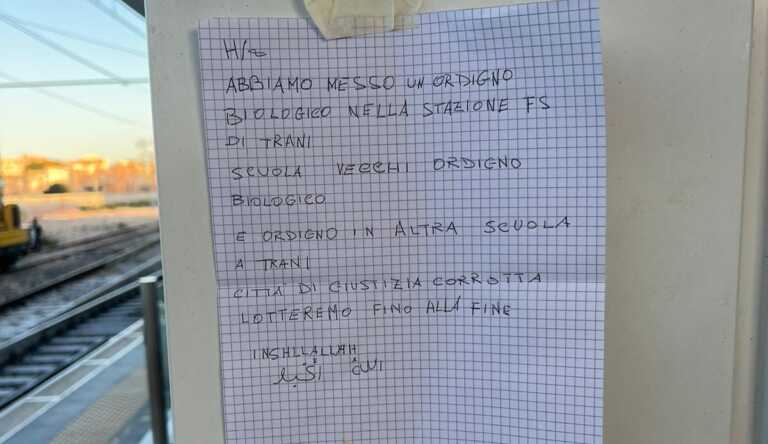 H/
ABBIAMO MESSO UN ORDIGNO
BIOLOGICO NELLA STAZIONE FS
DI TRANI
SCUOLA VECCHI ORDIGNO
BIOLOGICO
E ORDIGNO IN ALTRA SCUOLA
A TRANI
CITTÀ DI GIUSTIZIA CORROTTA
LOTTEREMO FINO ALLA FINE
INSHLLALLAH
الله